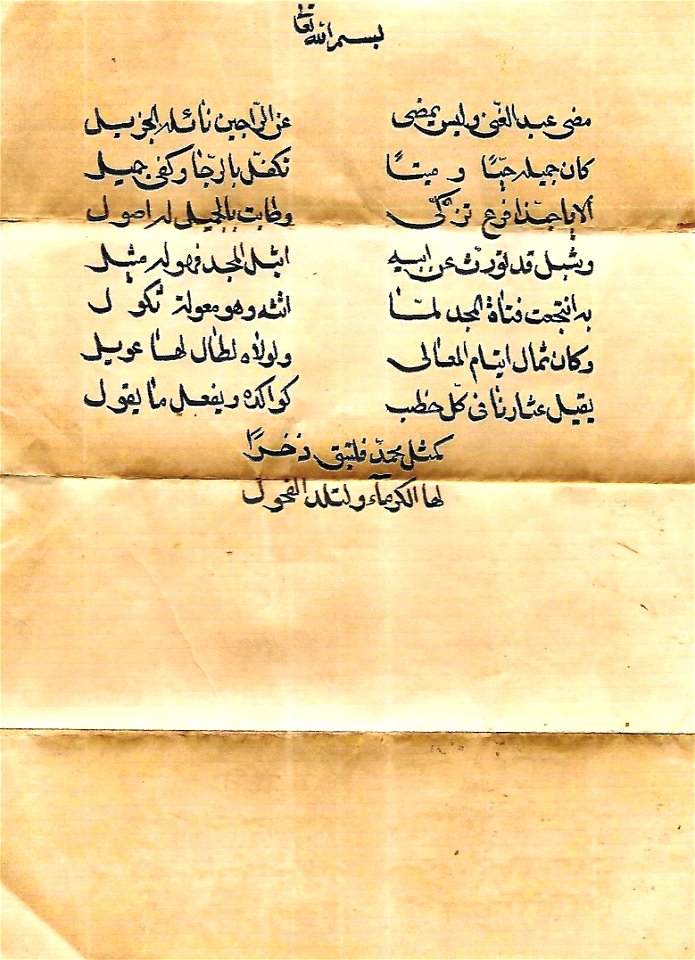 بسم الله تعالى
مضى عبد الغنى وليس يمضى عن الراجين نائله الجزيل
كان جميله حيًّا و ميتًا تكفّل بالرجا وكفى جميل
ألا يا حبّذا فرع تزكّى وطابت بالجميل له اصول
وشبل قد تورث عن ابيه اثيل المجد فهو له مثيل
به انتجعت فتاة المجد لمّا اتته وهو معولة ثكول
وكان ثمال ايتام المعالى ولولاه لطال لها عويل
يقيل عثارنا فى كلّ خطب كوالده ويفعل ما يقول
كمثل محمّد فلتبق ذخرًا
لها الكرماء ولتلد الفحول